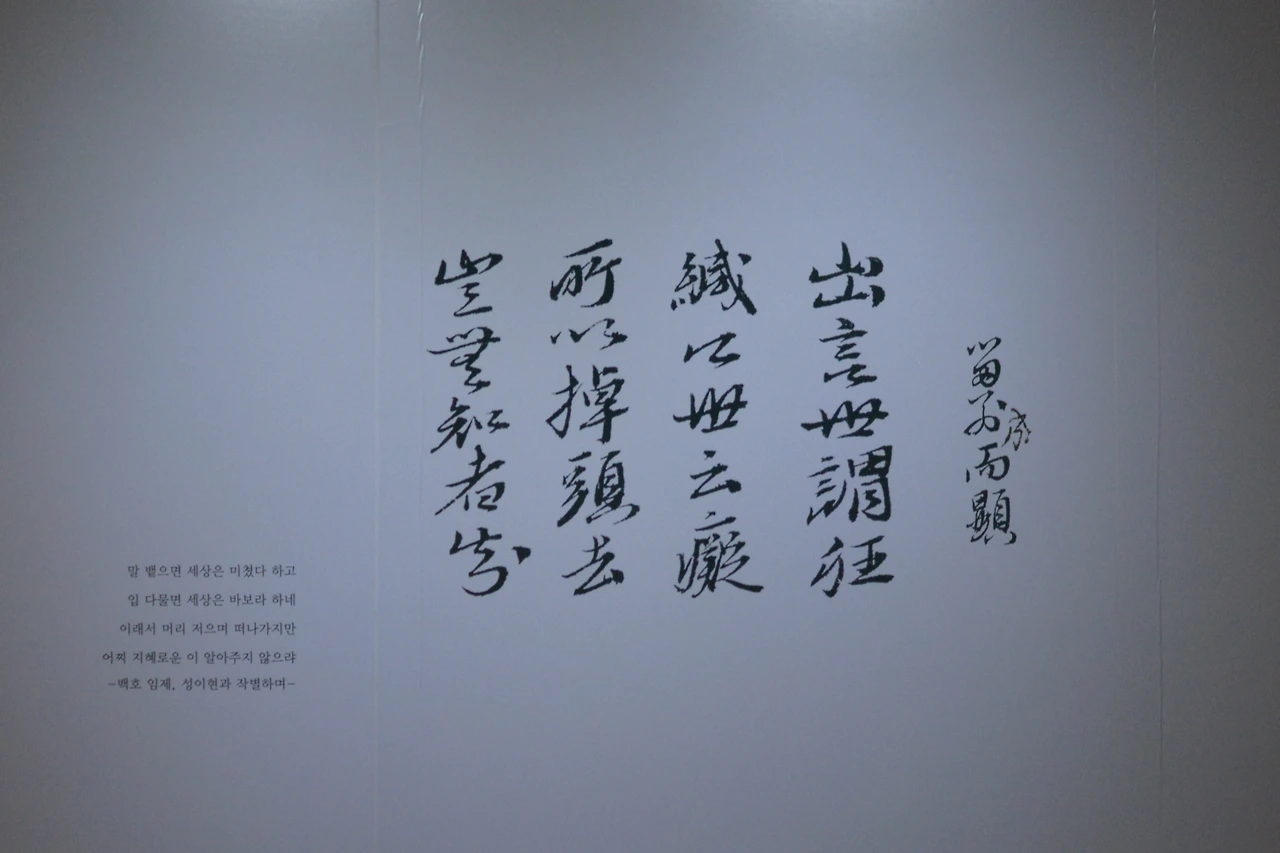 留別成而顯
出言世謂狂
緘口世云癡
所以掉頭去
豈無知者知
말 뱉으면 세상은 미쳤다 하고
입 다물면 세상은 바보라 하네
이래서 머리 저으며 떠나가지만
어찌 지혜로운 이 알아주지 않으랴
-백호 임제, 성이현과 작별하며-